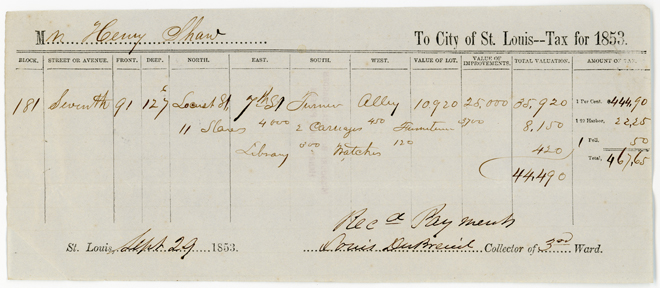 Mr. Henry Shaw To City of St. Louis--Tax for 1853.
BLOCK. STREET OR AVENUE. FRONT. DEEP. NORTH. EAST. SOUTH. WEST. VALUE OF LOT. VALUE OF IMPROVEMENTS. TOTAL VALUATION. AMOUNT OF TAX.
181 Seventh 91 127 Locust St 7th St Turner Alley 10920 25,000 35,920 1 Per Cent. 444,90
11 Slaves 4000 2 Carriages 450 Furniture 3700 8,150 1-20 Harbor, 22,25
Library 300 Watches 120 420 1 Poll, 50
Total, 467,65
44,490
Rec d Payment
St. Louis, Sept 29 1853. Louis DuBreuil Collector of 3rd Ward.